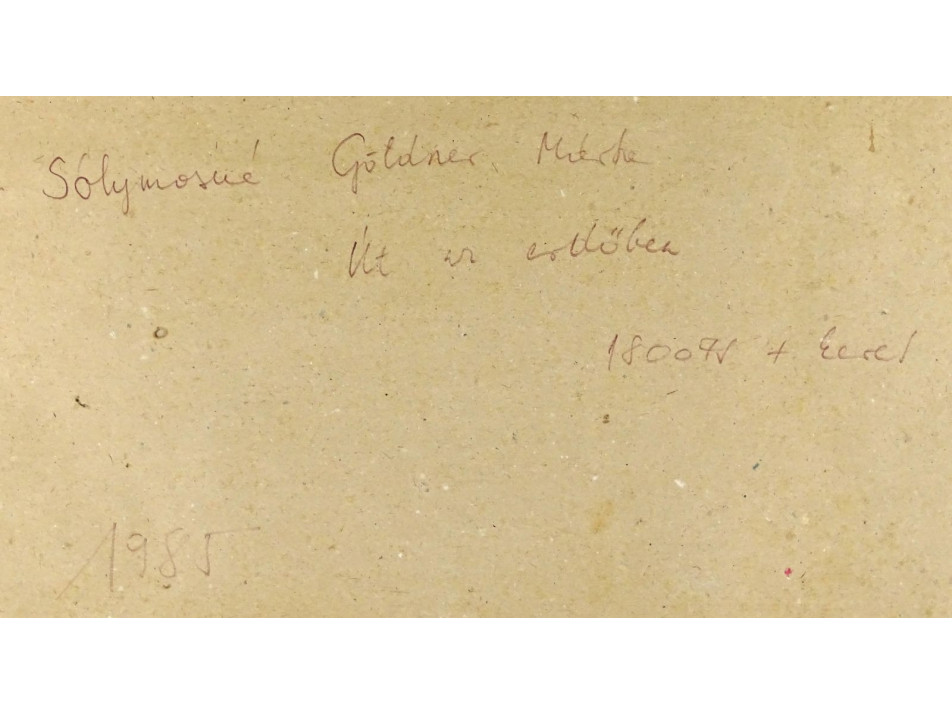 Sólymosné Göldner Márta
Út az erdőben
1800Ft + keret
1985